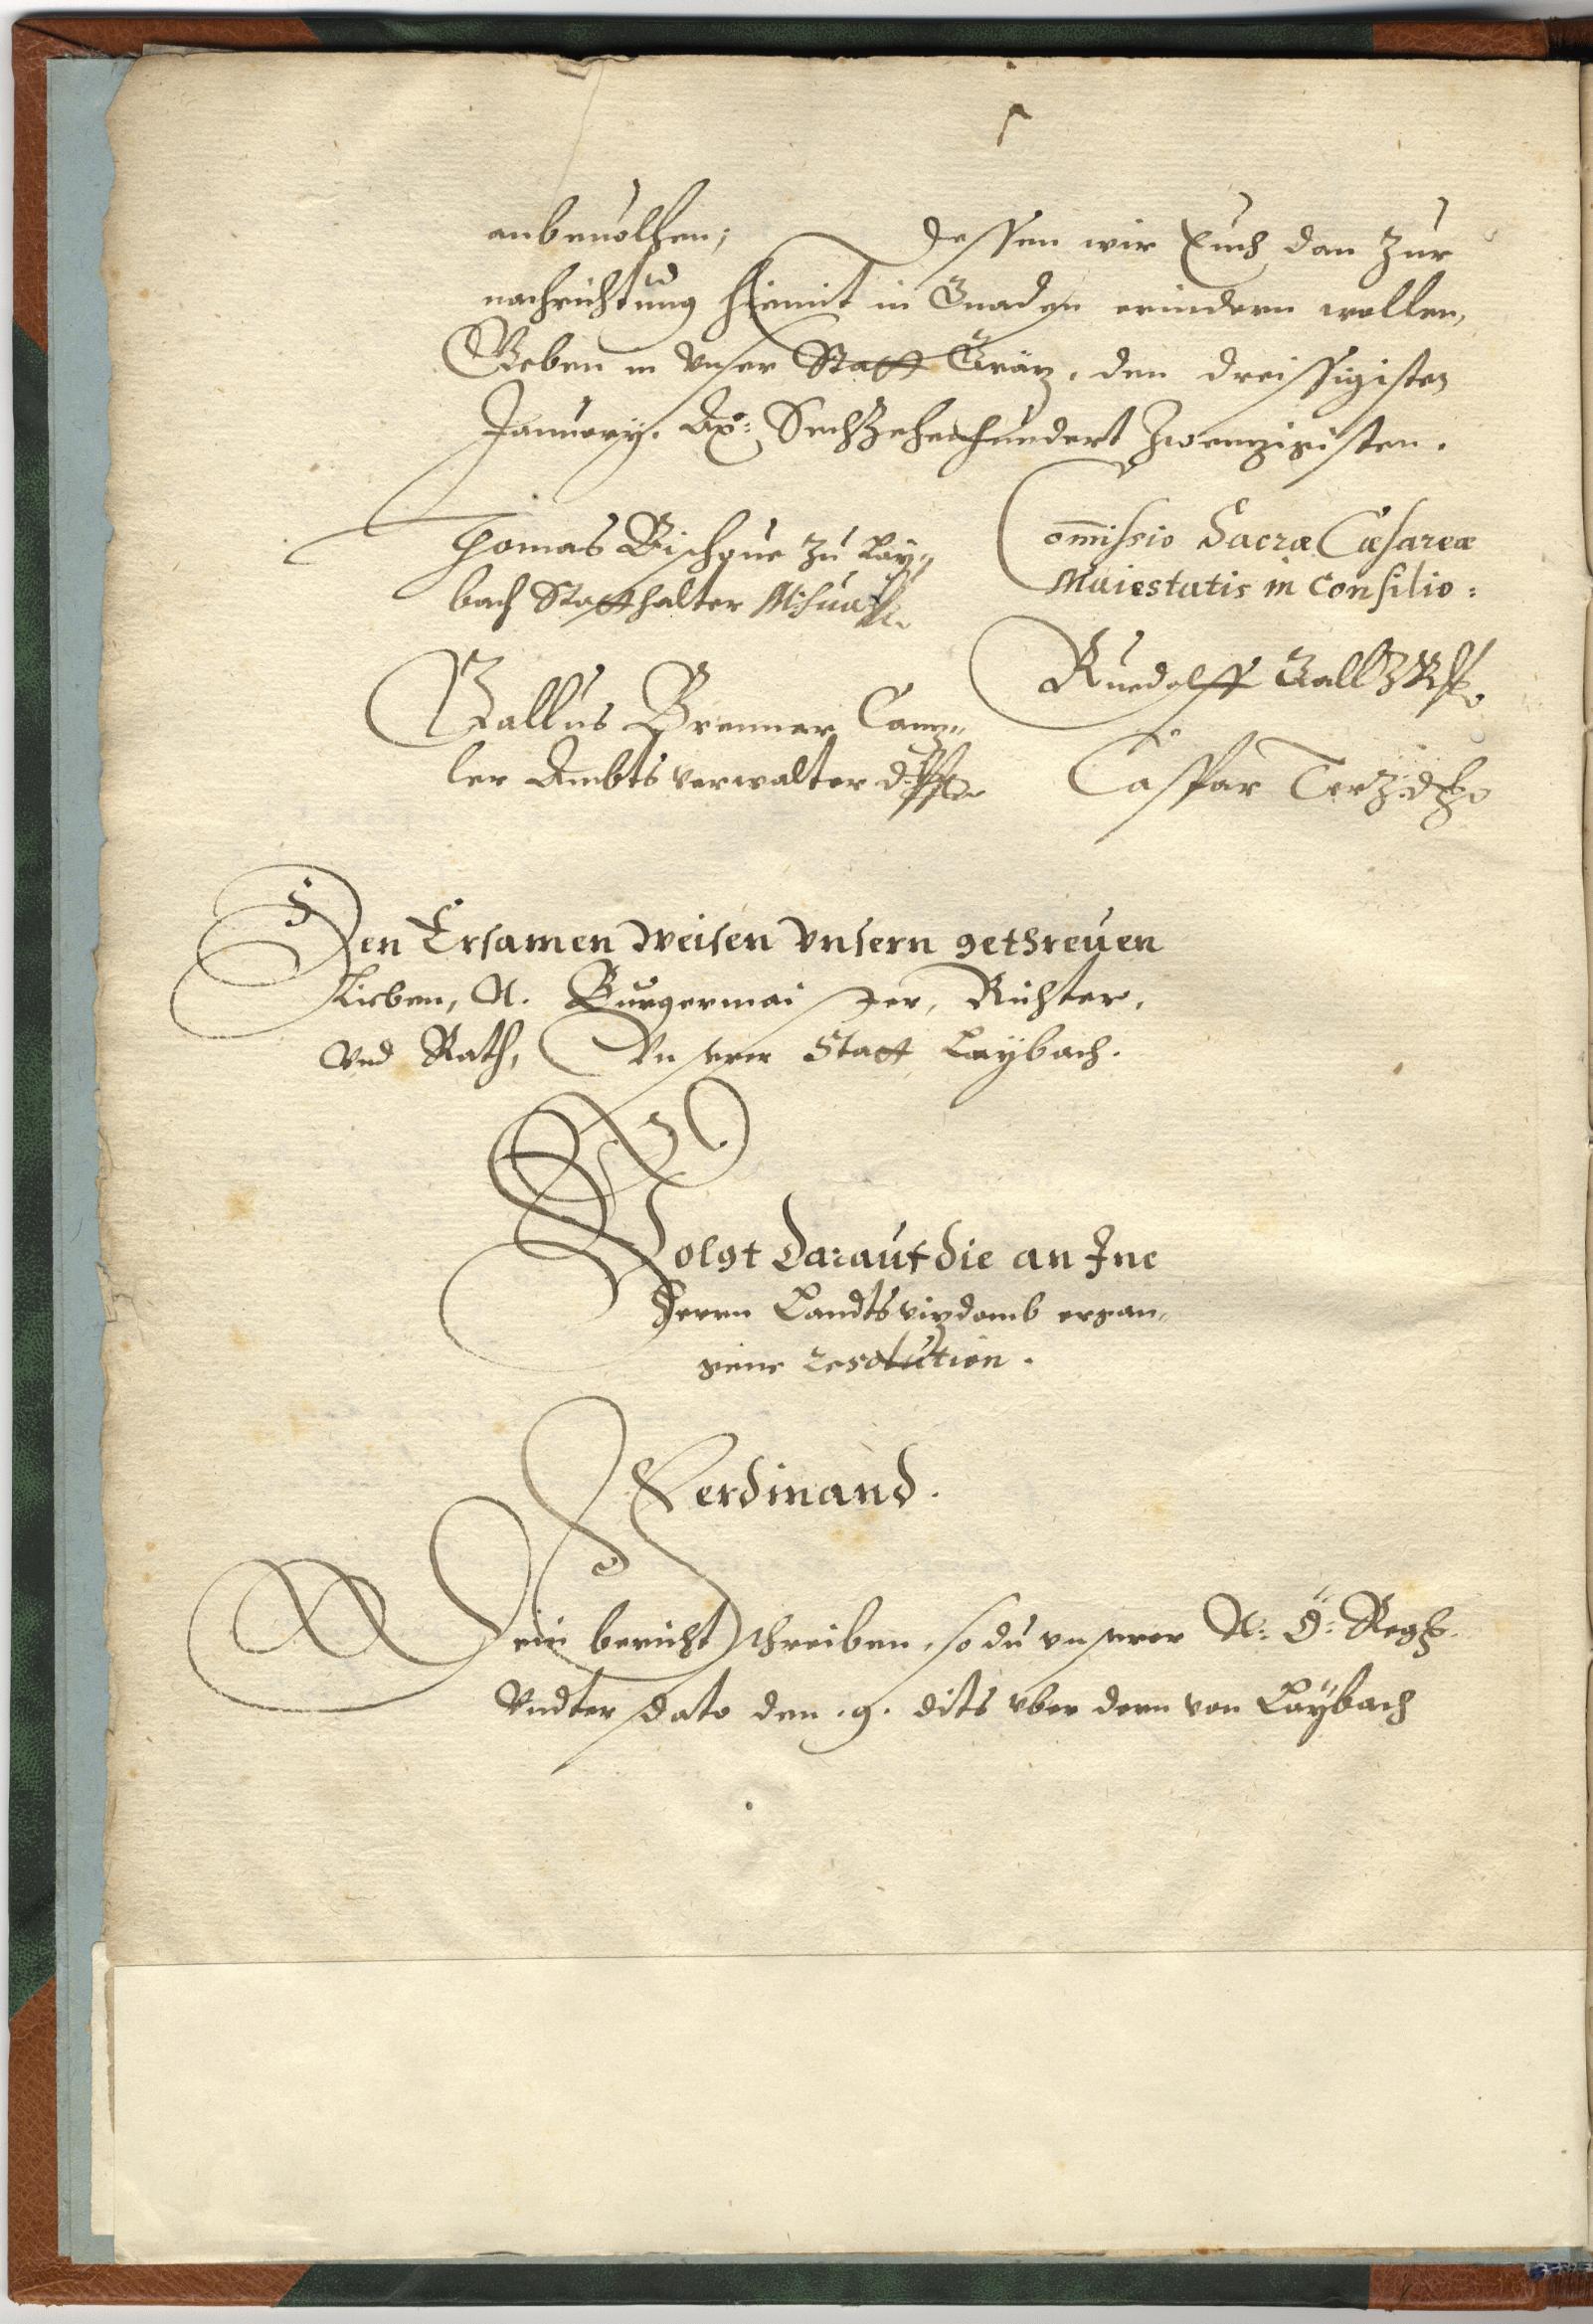 anbeuolhen; dessen wir Euch dan zur
nachrichtung hiemit in Gnaden erindern wollen,
Geben in Vnser Statt Gräz, den dreissigisten
January. Ao: Sechzehenhundert Zwenzigisten.
Thomas Bischoue zu Lay„
bach Statthalter
Commissio Sacræ Cæsareæ
Maiestatis in Consilio:
Gallus Brenner Canz„
ler Ambts verwalter
Ruedolff Gall
Caspar Terz
Den Ersamen Weisen Vnsern gethreuen
Lieben, N. Burgermaister, Richter,
Vnd Rath, Vnserer Statt Laybach.
Volgt darauf die an Ine
Herrn Landtsvizdomb ergan„
gene resolution.
Ferdinand.
Dein bericht schreiben, so du vnserer N: Ö: Reg
Vndter dato den .9. dits vber dern von Laÿbach